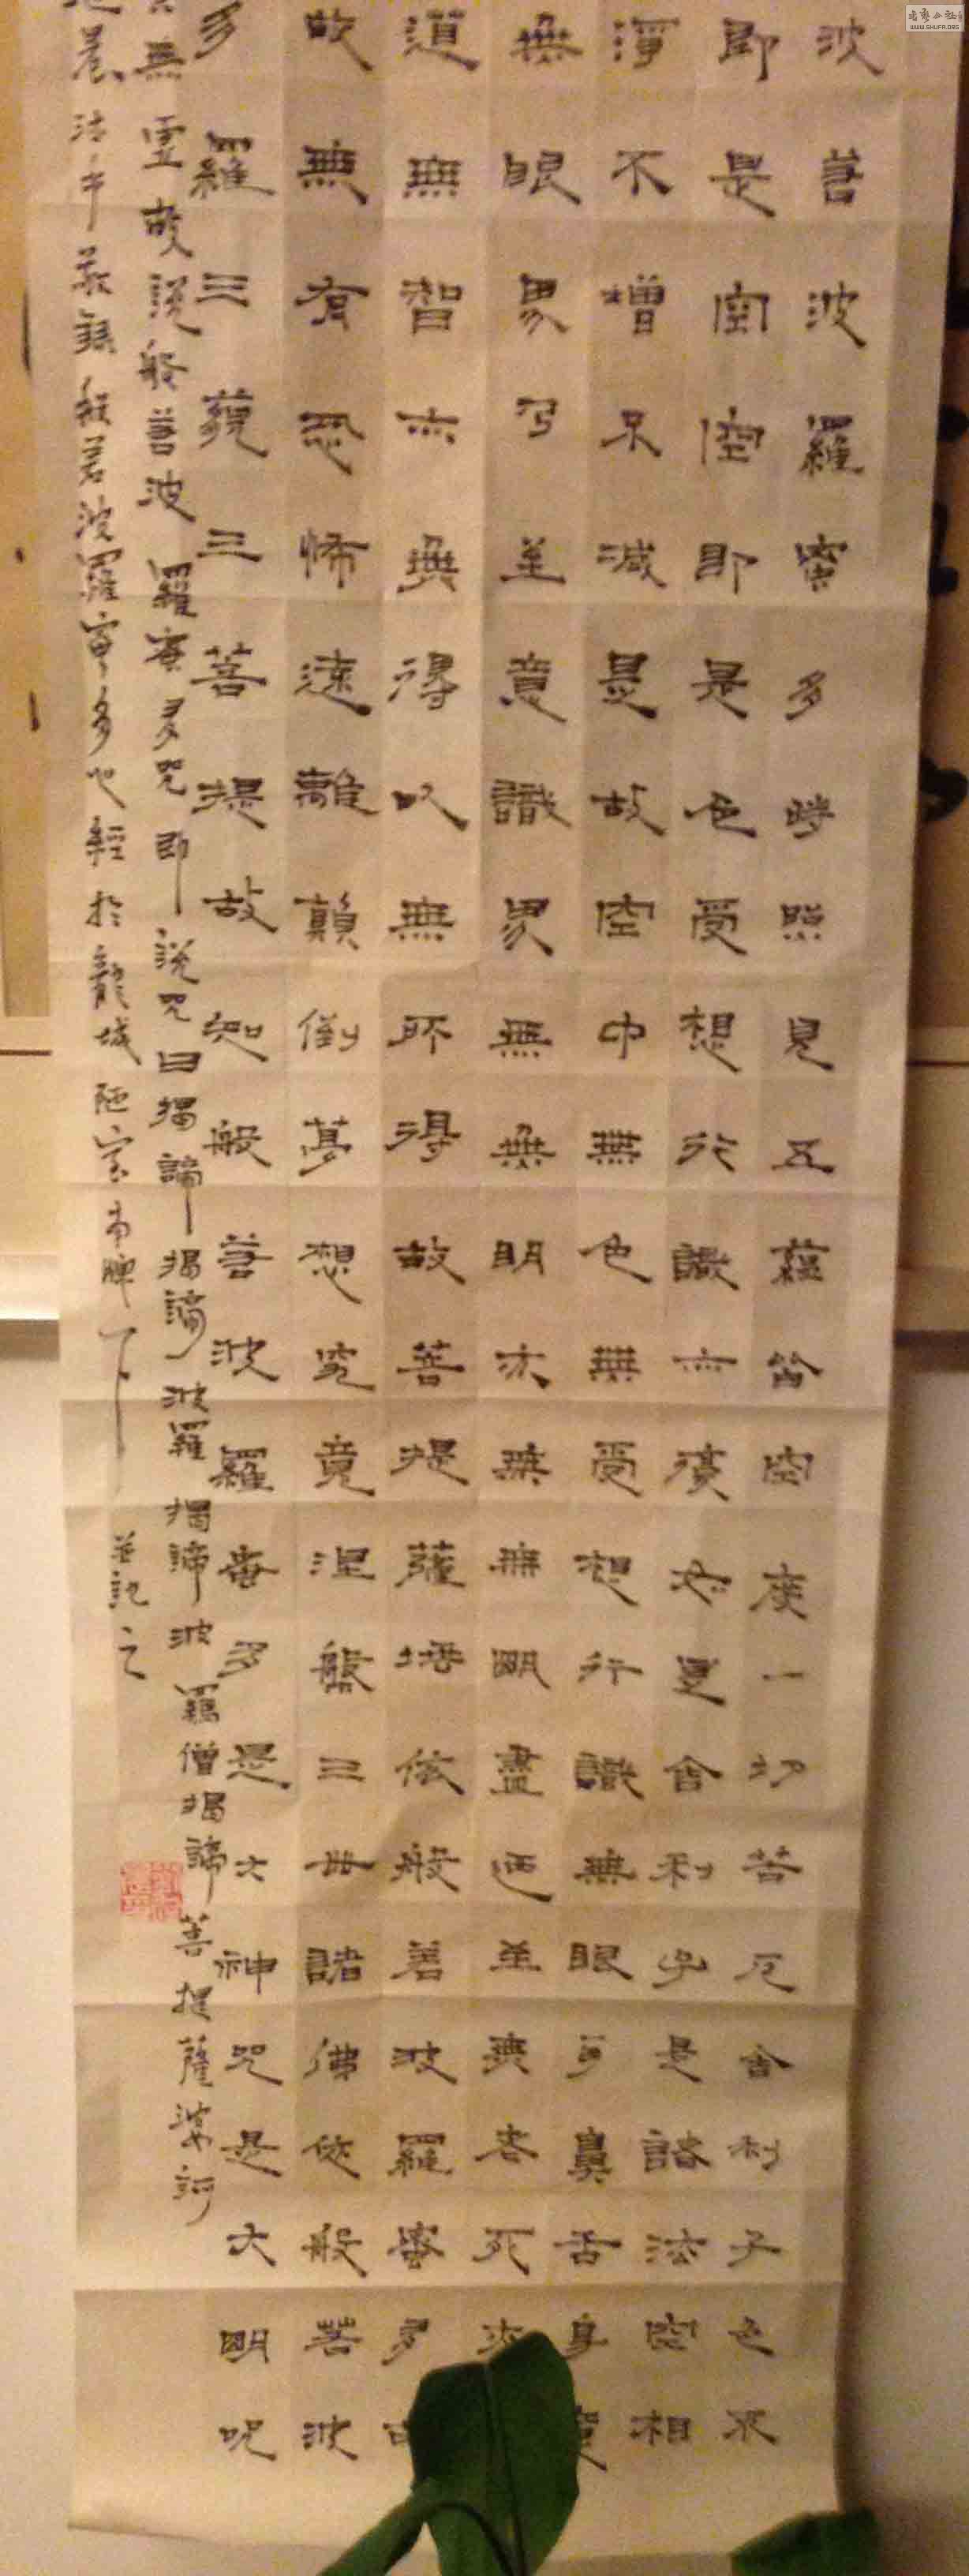 波若波羅蜜多時照見五蘊皆空度一切苦厄舍利子色不
即是空空即是色受想行識亦復如是舍利子是諸法空相
淨不增不減是故空中無色無受想行識無眼耳鼻舌身
無眼界乃至意識界無無明亦無無明盡乃至無老死亦
道無智亦無得以無所得故菩提薩埵依般若波羅蜜多
故無有恐怖遠離顛倒夢想究竟涅盤三世諸佛依般若波
多羅三藐三菩提故知般若波羅蜜多是大神咒是大明咒
無虛故說般若波羅蜜多咒即說咒曰揭諦揭諦波羅揭諦波羅僧揭諦菩提薩婆訶
般若波羅蜜多心經於龍城陋室南牖下並記之
WWW.SHUFA.ORG